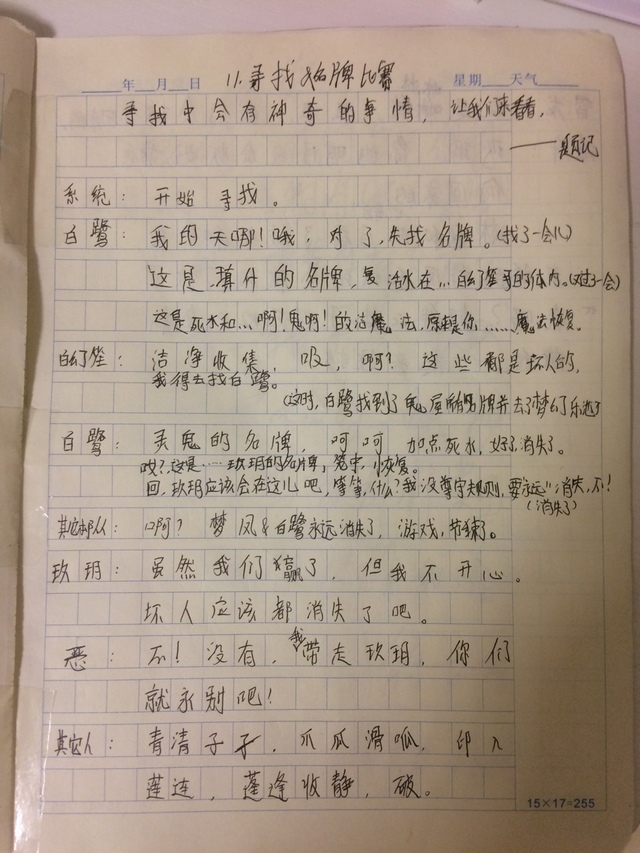 年 月 日 11.寻找名牌比赛 星期 天气
寻找中会有神奇的事情，让我们来看看，
——题记
系统：开始寻找。
白鹭：我的天哪！哦，对了，先找名牌。（找了一会儿）
这是 的名牌，复活水在…白幻笙哥的体内。（过了一会）
这是死水和…啊！鬼啊！的洁魔法，原来是你……魔法恢复。
白幻笙：洁净收集，吸，啊？这些都是坏人的，
我得去找白鹭。
（这时，白鹭找到了鬼屋所有名牌并去了梦幻乐
白鹭：灵鬼的名牌，呵呵 加点死水，好了，消失了。
哎？这是……玖玥的名牌，笼中，小恢复。
回，玖玥应该会在这儿吧，等等，什么？我没遵守规则，要永远消失，不！
（消失了）
其它 ：啊？梦凤&白鹭永远消失了，游戏，节
玖玥：虽然我们赢了，但我不开心。
坏人应该都消失了吧。
恶：不！没有，我带走玖玥，你们
就永别吧！
其它人：青清子子，爪瓜滑呱，印入
莲连，蓬逢收静，破。
15×17=255